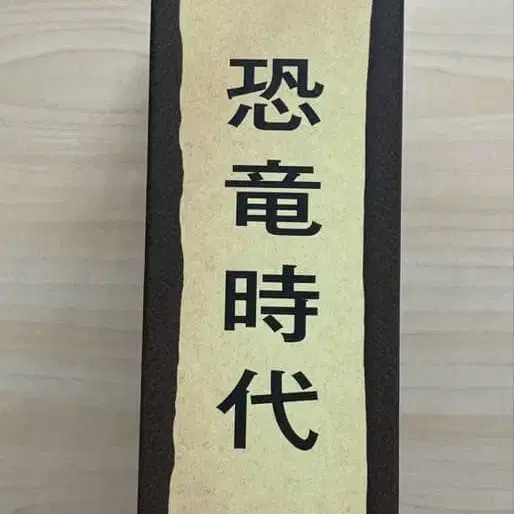 恐竜時代